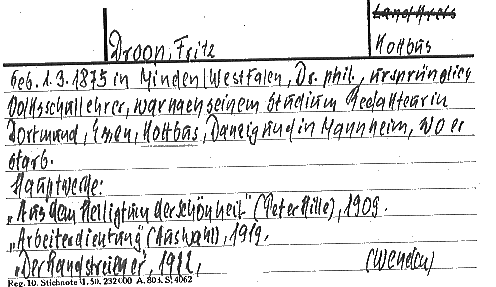 Landkreis
Droop, Fritz
Kottbus
Geb. 1.3.1875 in Minden/Westfalen, Dr. phil., ursprünglich
Volksschullehrer, war nach seinem Studium Redakteur in
Dortmund, Essen, Kottbus, Danzig und in Mannheim, wo er
starb.
Hauptwerke:
„Aus dem Heiligtum der Schönheit" (Peter Hille), 1909.
„Arbeiterdichtung" (Auswahl), 1919.
„Der Landstreicher", 1922,
(Wenden)
Reg. 10. Stichnote 1. 50. 232000 A. 803. S. 4062